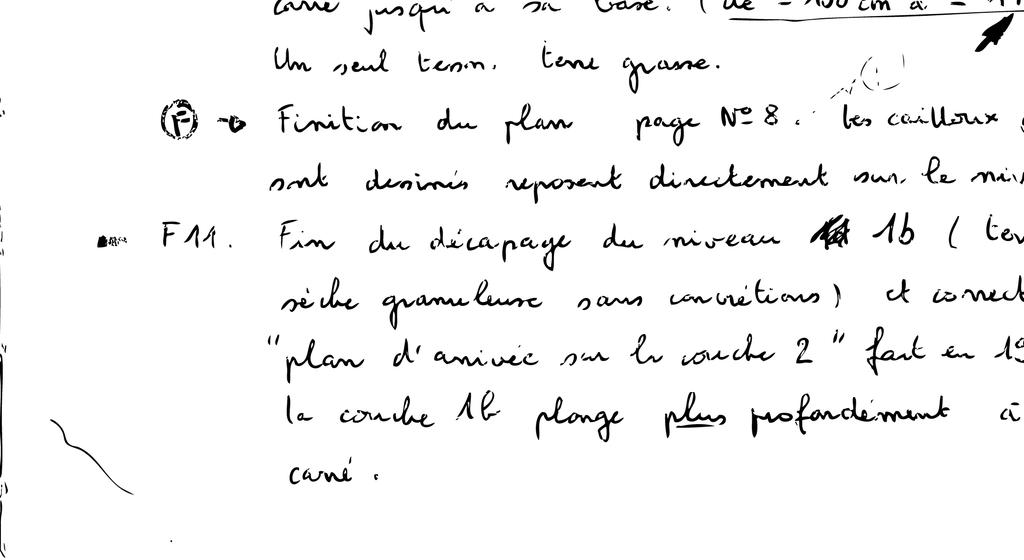 carré jusqu'à sa base. (de -150 cm à -
Un seul tesson. terre grasse.
(F) → Finition du plan page N° 8. Les cailloux
sont dessinés reposent directement sur le
F11. Fin du décapage du niveau 1b (
sèche granuleuse sans concrétions) et correct
"plan d'arrivée sur la couche 2" fait en 19
la couche 1b plonge plus profondément à
carré.